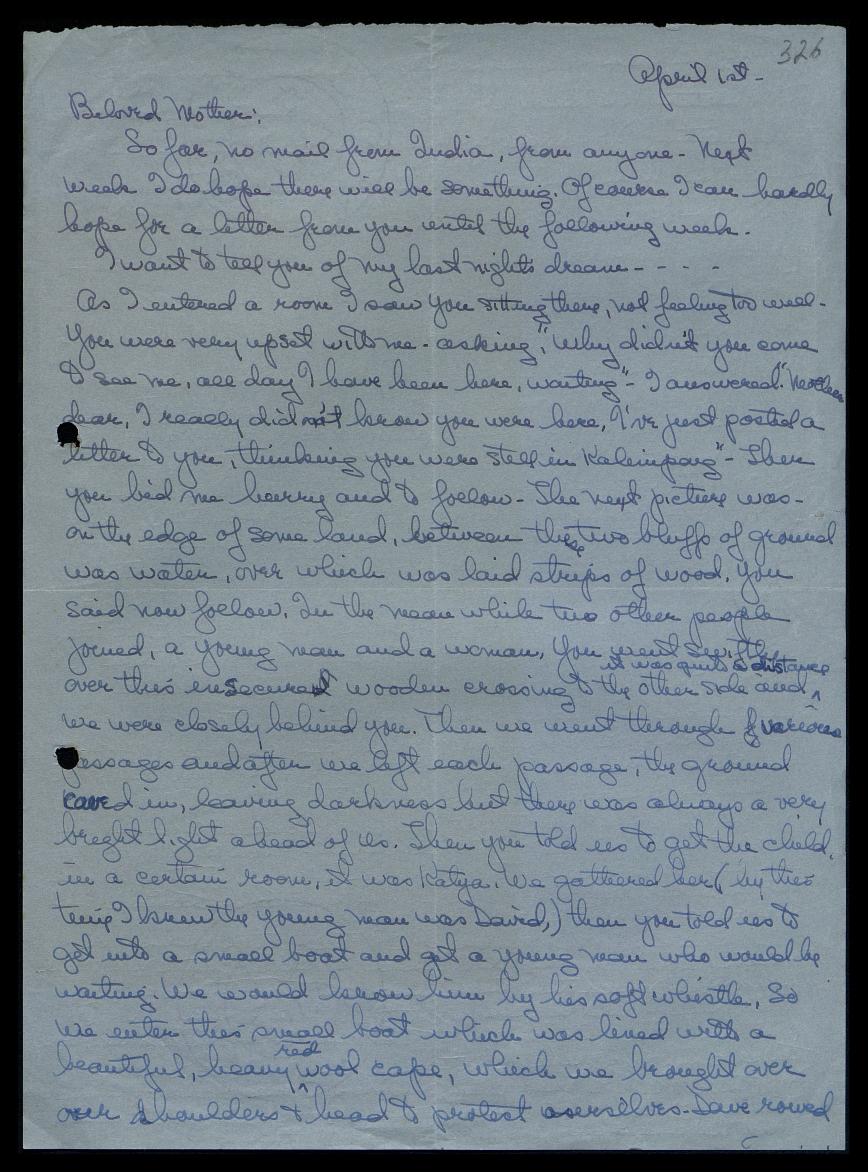 326
April 1st -
Beloved Mother:,
So far, no mail from India, from anyone - Next
week I do hope there will be something. Of course I can hardly
hope for a letter from you until the following week.
I want to tell you of my last night's dream - - - -
As I entered a room I saw you sitting there, not feeling too well -
You were very upset with me - asking, "Why didn't you come
to see me, all day I have been here, waiting" - I answered. "Mother
dear, I really did not know you were here, I've just posted a
letter to you, thinking you were still in Kalimpong" - Then
you bid me hurry and to follow - The next picture was -
on the edge of some land, between these two bluffs of ground
was water, over which was laid strips of wood. You
said now follow. In the mean while two other people
joined, a young man and a woman, You went swiftly
it was quite a distance
over this insecured wooden crossing to the other side and ^
we were closely behind you. Then we went through various
passages and after we left each passage, the ground
caved in, leaving darkness but there was always a very
bright light ahead of us. Then you told us to get the child,
in a certain room, it was Katya. We gathered her (by this
time I knew the young man was David,) then you told us to
get into a small boat and get a young man who would be
waiting. We would know him by his soft whistle, So
we enter this small boat which was lined with a
beautiful, heavy ^ red wool cape, which we brought over
our shoulders & head to protect ourselves - Dave rowed